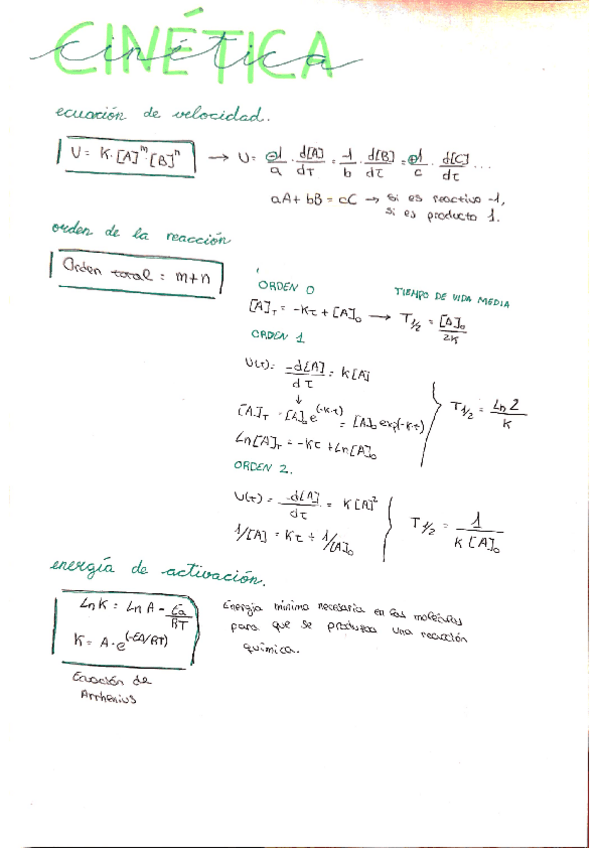 CINÉTICA
cinética
ecuación de velocidad.
V = K·[A]^m·[B]^n → V = -1/a · d[A]/dτ = -1/b · d[B]/dτ = +1/c · d[C]/dτ ...
aA + bB = cC → si es reactivo -1,
si es producto 1.
orden de la reacción
Orden total = m+n
ORDEN 0
TIEMPO DE VIDA MEDIA
[A]τ = -Kτ + [A]₀ → T½ = [A]₀/2K
ORDEN 1
V(τ) = -d[A]/dτ = K[A]
↓
[A]τ = [A]₀ e^(-K·τ) = [A]₀ exp(-K·τ)
T½ = Ln 2/K
Ln[A]τ = -Kτ + Ln[A]₀
ORDEN 2.
V(τ) = -d[A]/dτ = K[A]²
1/[A] = Kτ + 1/[A]₀
T½ = 1/K[A]₀
energía de activación.
Ln K = Ln A - Ea/RT
K = A·e^(-EA/RT)
Energía mínima necesaria en las moléculas
para que se produzca una reacción
química.
Ecuación de
Arrhenius